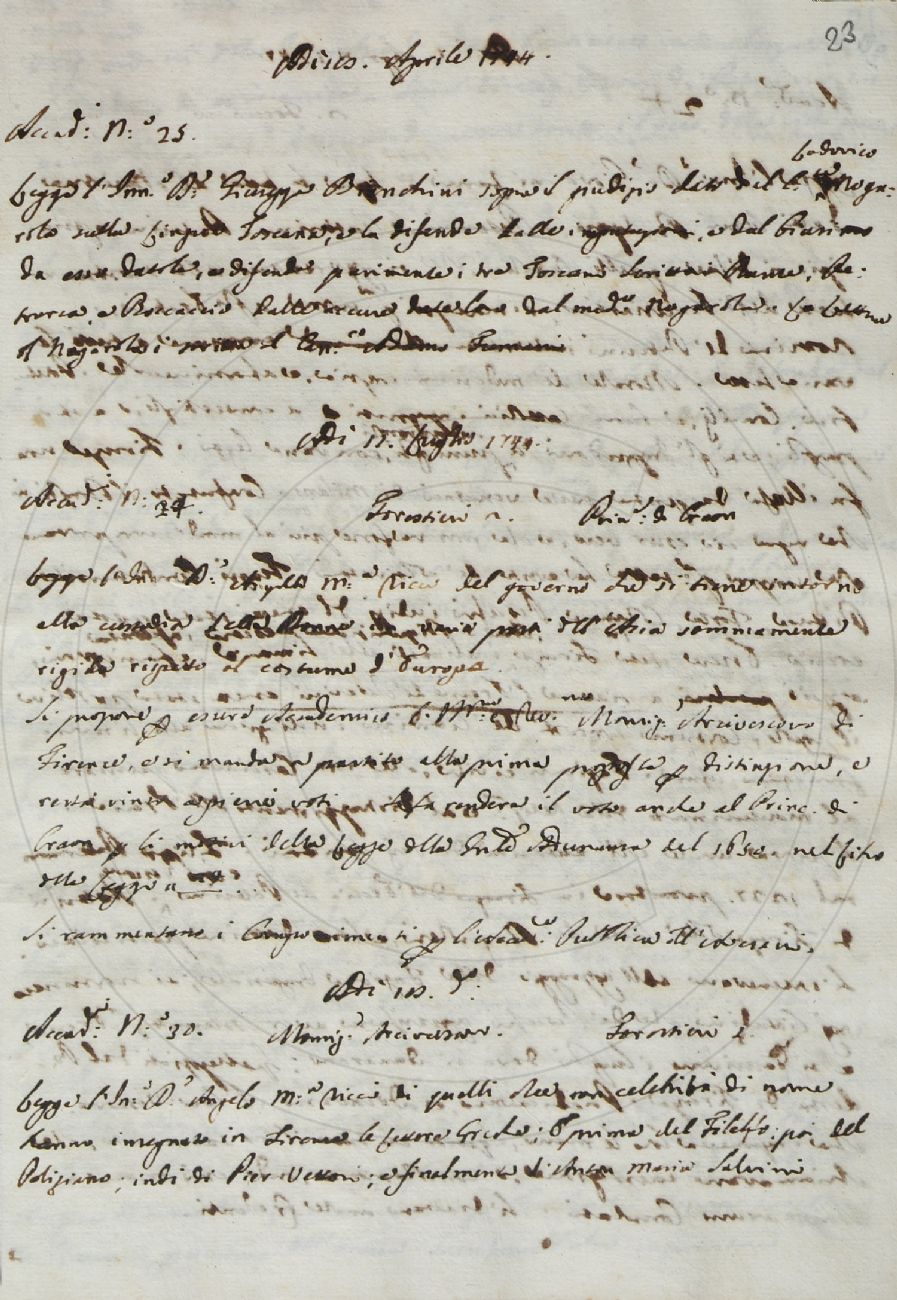 23
Adì 10. Aprile 1744.
Accad.i N.o 25.
Lodovico
Legge l'Inn.o D.r Giuseppe Bianchini sopra il giudizio dato dal C. Noga-
rola sulla lingua Toscana, e la difende dalle, e dal biasimo
da essa datole, e difende parimente i tre Toscani Scrittori Dante, Pe-
trarca, e Boccaccio dalle accuse date loro dal med.o Nogarola. La lettera
Adì Luglio 1744.
Accad.i N. 24. Forestieri 2. Prin.e di Craon
Legge l'In.o D.r Angelo M.a Ricci del governo che si tiene intorno
alla custodia delle Donne in varie parti dell'Asia sommamente
rigida rispetto al costume d'Europa.
Si propone p essere Accademico l'Ill.mo e Rev.mo Monsig.r Arcivescovo di
Firenze, e si manda a partito alla prima proposta p distinzione, e
resta vinto a pieni voti. Si fa rendere il voto anche al Princ. di
Craon p li motivi della Legge della Adunanza del 1650. nel libro
delle Leggi a
Si rammentano i Componimenti p l'Accad.a Pubblica
Adì 10. d.o
Accad.i N.o 30. Monsig.r Arcivescovo. Forestieri
Legge l'In.o D.r Angelo M.a Ricci di quelli che con celebrità di nome
hanno insegnato in Firenze le lettere Greche; e prima del Filelfo; poi del
Poliziano; indi di Pier Vettori; e finalmente di Anton Maria Salvini